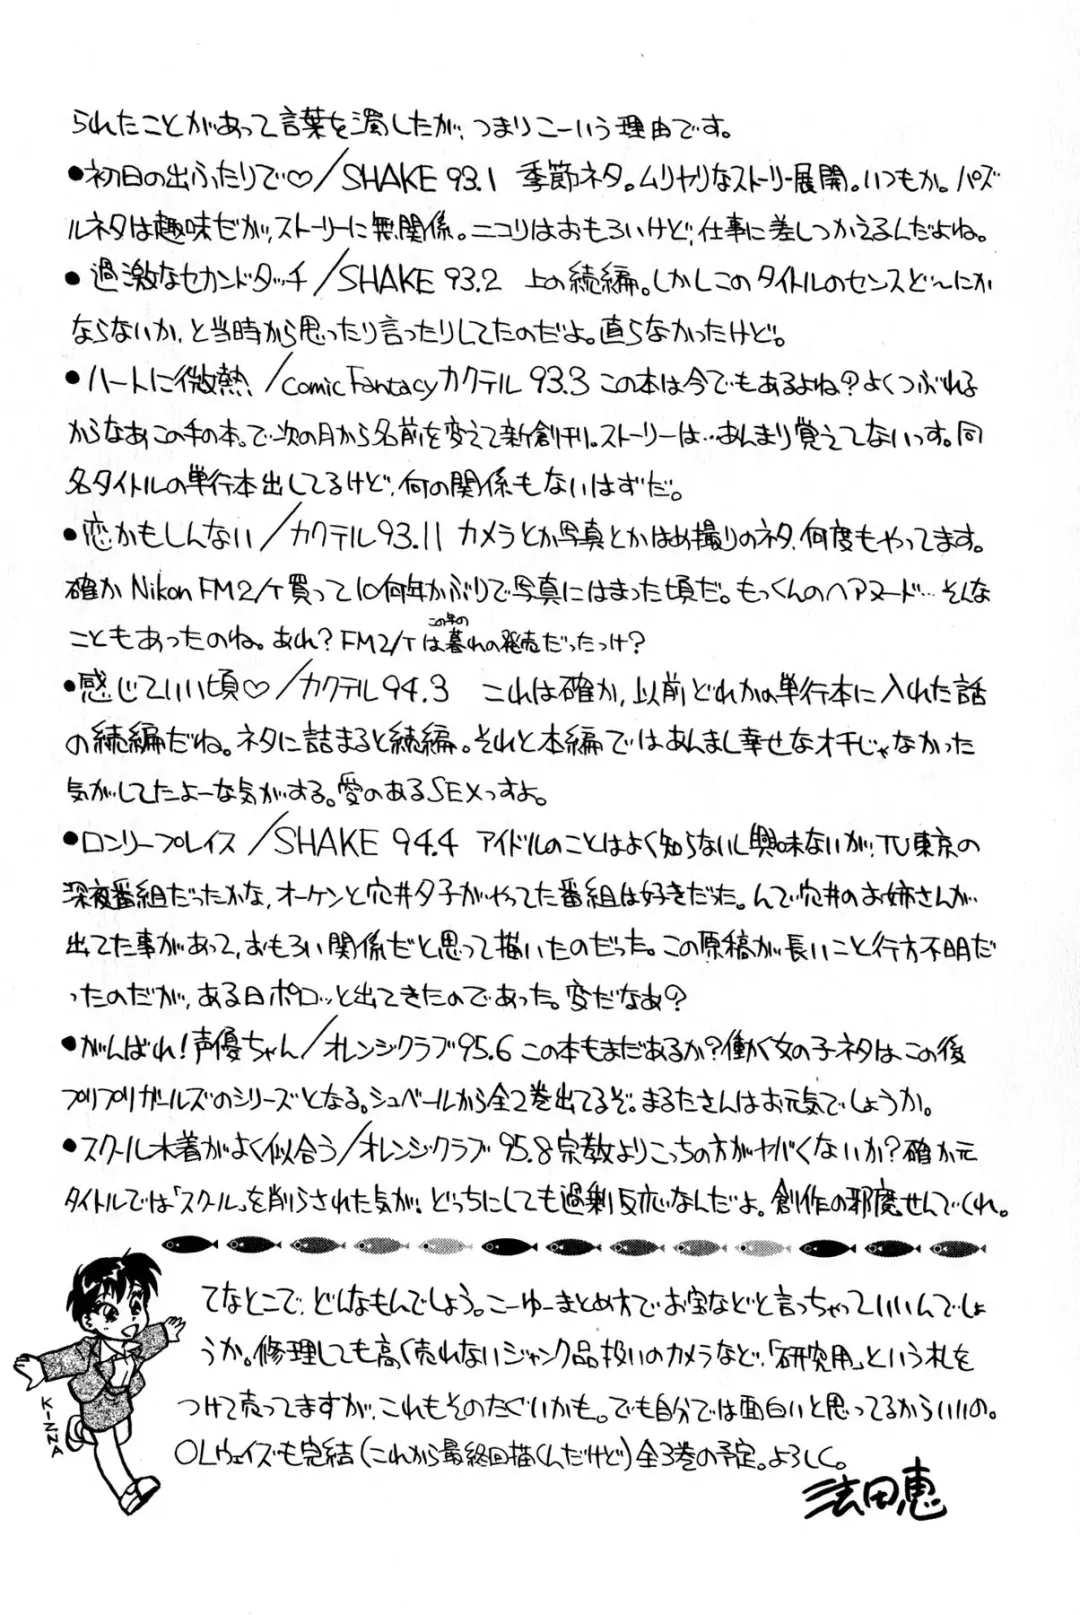 られたことがあって言葉を濁したが、つまりこーいう理由です。
●初日の出ふたりで♡/SHAKE 93.1 季節ネタ。ムリヤリなストーリー展開。いつもか。パズ
ルネタは趣味だが、ストーリーに無関係。ニコリはおもろいけど、仕事に差しつかえるんだよね。
●過激なセカンドタッチ/SHAKE 93.2 上の続編。しかしこのタイトルのセンスど〜にか
ならないか、と当時から思ったり言ったりしてたのだよ。直らなかったけど。
●ハートに微熱/comic Fantacyカクテル 93.3 この本は今でもあるよね?よくつぶれる
からなあこの手の本。で次の月から名前を変えて新創刊。ストーリーは…あんまり覚えてないっす。同
名タイトルの単行本出してるけど、何の関係もないはずだ。
●恋かもしんない/カクテル93.11 カメラとか写真とかはめ撮りのネタ、何度もやってます。
確かNikon FM2/T買って10何年かぶりで写真にはまった頃だ。もっくんのヘアヌード…そんな
こともあったのね。あれ?FM2/Tはこの年の暮れの発売だったっけ?
●感じていい頃♡/カクテル94.3 これは確か、以前どれかの単行本に入れた話
の続編だね。ネタに詰まると続編。それと本編ではあんまし幸せなオチじゃなかった
気がしてたよーな気がする。愛のあるSEXっすよ。
●ロンリープレイス/SHAKE 94.4 アイドルのことはよく知らないし興味ないが、TV東京の
深夜番組だったかな、オーケンと穴井夕子がやってた番組は好きだった。んで穴井のお姉さんが
出てた事があって、おもろい関係だと思って描いたのだった。この原稿が長いこと行方不明だ
ったのだが、ある日ポロッと出てきたのであった。変だなあ?
●がんばれ!声優ちゃん/オレンジクラブ95.6 この本もまだあるか?働く女の子ネタは、この後
プリプリガールズのシリーズとなる。シュベールから全2巻出てるぞ。まるたさんはお元気でしょうか。
●スクール水着がよく似合う/オレンジクラブ 95.8 宗教よりこっちの方がヤバくないか?確か元
タイトルでは「スクール」を削らされた気が。どっちにしても過剰反応なんだよ。創作の邪魔せんでくれ。
てなとこで、どんなもんでしょう。こーゆーまとめ方でお宝などと言っちゃっていいんでしょ
うか。修理しても高く売れないジャンク品扱いのカメラなど、「研究用」という札を
つけて売ってますが、これもそのたぐいかも。でも自分では面白いと思ってるからいいの。
OLウェイズも完結(これから最終回描くんだけど)全3巻の予定。よろしく。
法田恵
KIZNA